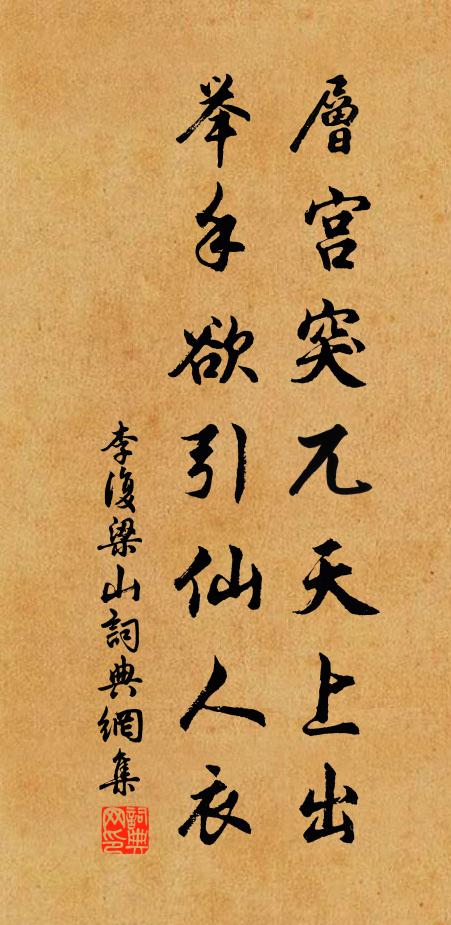 層宫突兀天上出
举手欲引仙人衣
李復梁山詞典網集
詞典网印